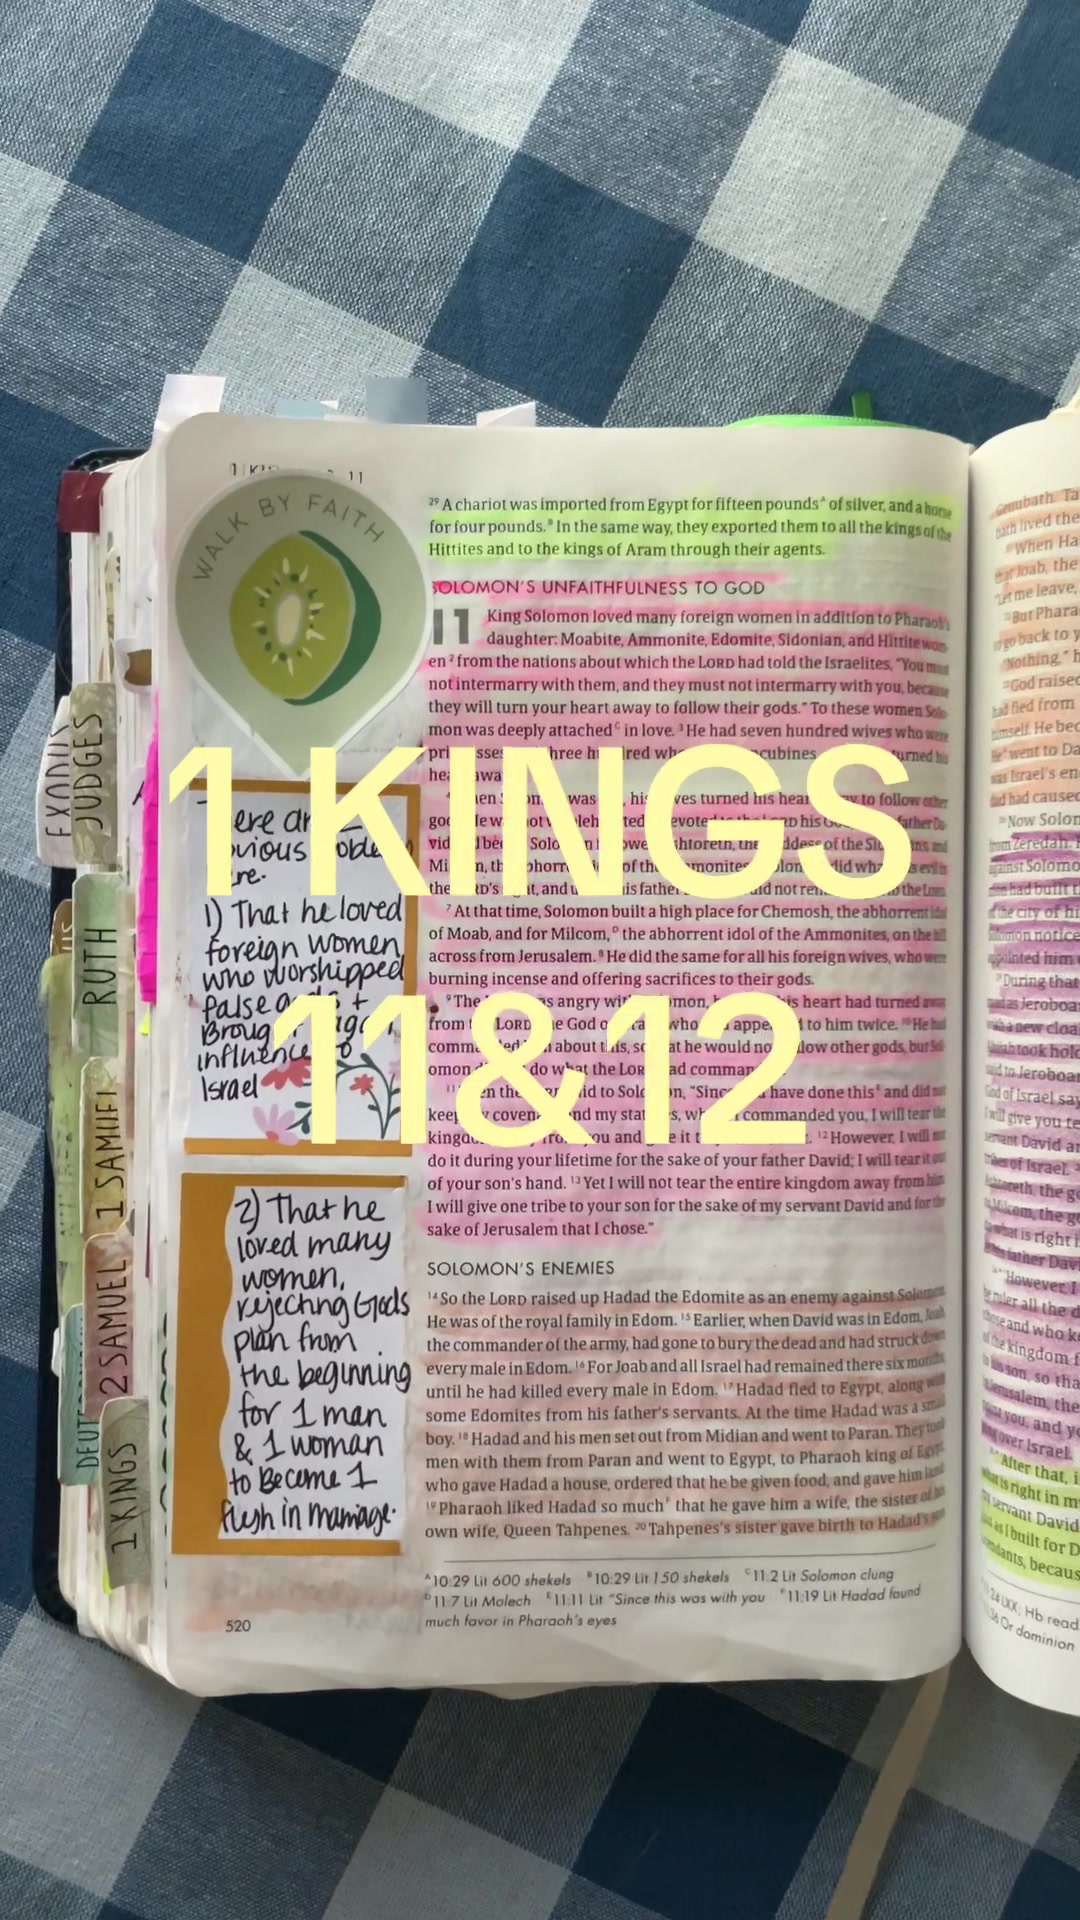 1 KINGS
11&12
11
WALK BY FAITH
29 A chariot was imported from Egypt for fifteen pounds^A of silver, and a horse
for four pounds.^B In the same way, they exported them to all the kings of the
Hittites and to the kings of Aram through their agents.
SOLOMON'S UNFAITHFULNESS TO GOD
11 King Solomon loved many foreign women in addition to Pharaoh's
daughter: Moabite, Ammonite, Edomite, Sidonian, and Hittite wom-
en 2 from the nations about which the LORD had told the Israelites, "You must
not intermarry with them, and they must not intermarry with you, because
they will turn your heart away to follow their gods." To these women Solo-
mon was deeply attached^C in love. 3 He had seven hundred wives who were
turned his
was his turned his to follow other
his father Da-
the of the
of the did what evil in
the and his father did not the LORD.
7 At that time, Solomon built a high place for Chemosh, the abhorrent idol
of Moab, and for Milcom,^D the abhorrent idol of the Ammonites, on the hill
across from Jerusalem. 8 He did the same for all his foreign wives, who were
burning incense and offering sacrifices to their gods.
9 The was angry with his heart had turned away
from LORD, God of who to him twice. 10 He had
about this, so that he would not follow other gods, but Sol-
omon do what the LORD had
11 Then the said to "Since have done this^E and did not
keep my and my commanded you, I will tear the
you and give it 12 However, I will not
do it during your lifetime for the sake of your father David; I will tear it out
of your son's hand. 13 Yet I will not tear the entire kingdom away from him.
I will give one tribe to your son for the sake of my servant David and for the
sake of Jerusalem that I chose."
SOLOMON'S ENEMIES
14 So the LORD raised up Hadad the Edomite as an enemy against Solomon.
He was of the royal family in Edom. 15 Earlier, when David was in Edom, Joab,
the commander of the army, had gone to bury the dead and had struck down
every male in Edom. 16 For Joab and all Israel had remained there six months,
until he had killed every male in Edom. 17 Hadad fled to Egypt, along with
some Edomites from his father's servants. At the time Hadad was a small
boy. 18 Hadad and his men set out from Midian and went to Paran. They took
men with them from Paran and went to Egypt, to Pharaoh king of Egypt,
who gave Hadad a house, ordered that he be given food, and gave him land.
19 Pharaoh liked Hadad so much^F that he gave him a wife, the sister of his
own wife, Queen Tahpenes. 20 Tahpenes's sister gave birth to Hadad's son
^A 10:29 Lit 600 shekels ^B 10:29 Lit 150 shekels ^C 11:2 Lit Solomon clung
^D 11:7 Lit Molech ^E 11:11 Lit "Since this was with you ^F 11:19 Lit Hadad found
much favor in Pharaoh's eyes
520
1) That he loved
foreign women
who worshipped
false gods +
influence to
Israel
2) That he
loved many
women,
rejecting Gods
plan from
the beginning
for 1 man
& 1 woman
to become 1
flesh in marriage.
JUDGES
RUTH
1 SAMUEL
2 SAMUEL
1 KINGS
DEUT
Genubath. Ta
bath lived the
When Ha
that Joab, the
"Let me leave,
But Phara
to go back to y
"Nothing," h
God raised
had fled from
himself. He bec
went to Da
was Israel's en
had caused
Now Solom
from Zeredah.
against Solomo
had built t
of the city of hi
Solomon notice
appointed him
During that
Jeroboa
with a new cloa
took hold
said to Jeroboa
God of Israel say
I will give you te
servant David an
tribes of Israel.
Ashtoreth, the go
Milcom, the go
what is right i
his father Davi
However, I
ruler all the d
chose and who ke
the kingdom f
his son, so tha
Jerusalem, the
you, and yo
king over Israel.
After that, i
what is right in m
servant David
just as I built for D
descendants, becaus
11:24 LXX; Hb read
Or dominion